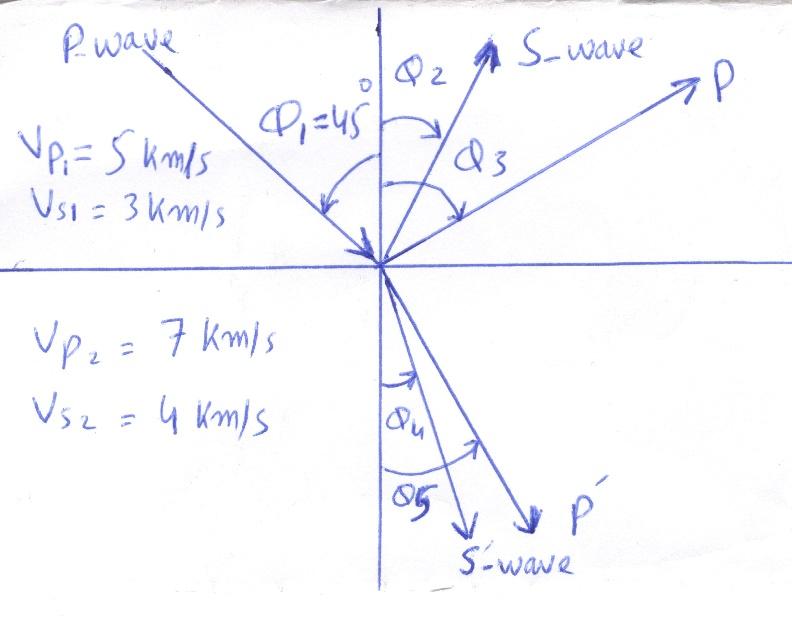 P-wave
Φ₂
S-wave
P
Φ₁=45°
Φ3
Vp₁= 5 km/s
Vs1 = 3 km/s
Vp₂ = 7 km/s
Vs2 = 4 km/s
Φ4
Φ5
P´
S´-wave